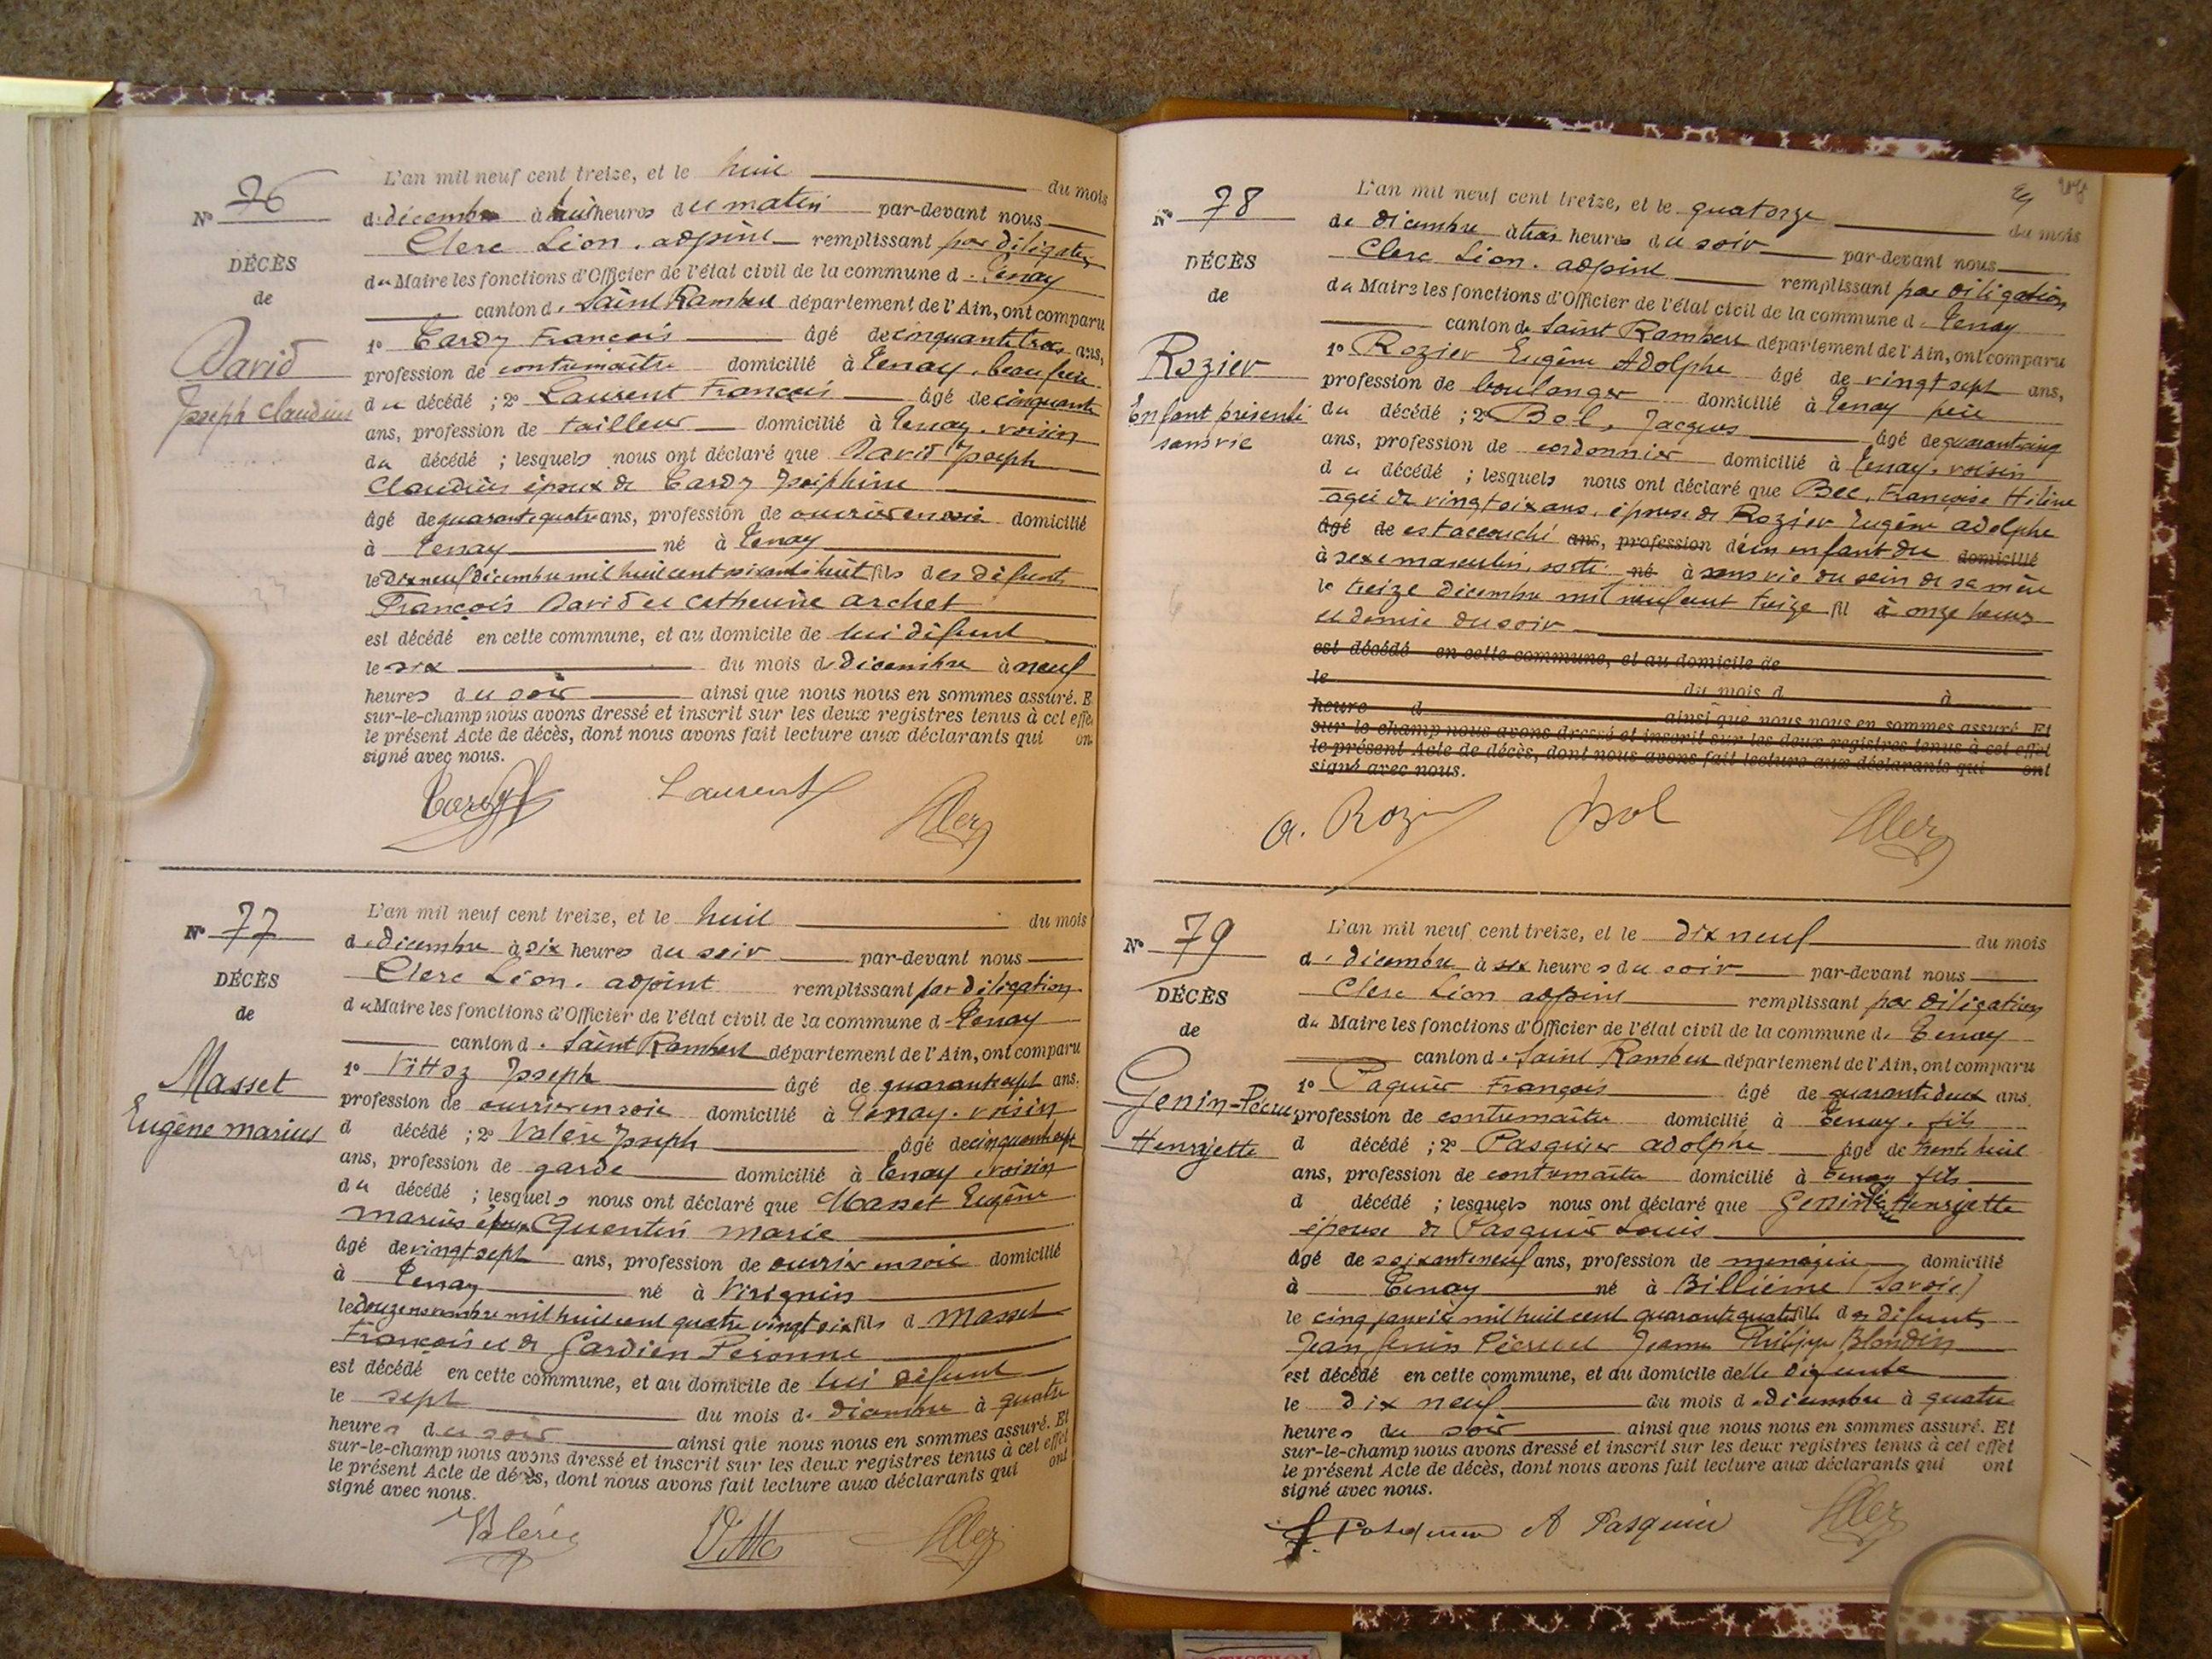 N° 76
DÉCÈS
de
David
Joseph Claudius
L'an mil neuf cent treize, et le huit du mois
de décembre à huit heures du matin par-devant nous
Clerc Léon, adjoint remplissant par délégation
du Maire les fonctions d'Officier de l'état civil de la commune de Tenay
canton de Saint Rambert département de l'Ain, ont comparu
1° Tardy François âgé de cinquante trois ans,
profession de contremaître domicilié à Tenay, beau frère
du décédé ; 2° Laurent François âgé de cinquante
ans, profession de tailleur domicilié à Tenay, voisin
du décédé ; lesquels nous ont déclaré que David Joseph
Claudius époux de Tardy Joséphine
âgé de quarante quatre ans, profession de ouvrier en soie domicilié
à Tenay né à Tenay
le dix neuf décembre mil huit cent soixante huit fils des défunts
François David et Catherine Archet
est décédé en cette commune, et au domicile de lui défunt
le six du mois de décembre à neuf
heures du soir ainsi que nous nous en sommes assuré. E
sur-le-champ nous avons dressé et inscrit sur les deux registres tenus à cet effe
le présent Acte de décès, dont nous avons fait lecture aux déclarants qui on
signé avec nous.
Tardy Laurent Clerc
N° 77
DÉCÈS
de
Masset
Eugène Marius
L'an mil neuf cent treize, et le huit du mois
de décembre à six heures du soir par-devant nous
Clerc Léon, adjoint remplissant par délégation
du Maire les fonctions d'Officier de l'état civil de la commune d Tenay
canton de Saint Rambert département de l'Ain, ont comparu
1° Vittoz Joseph âgé de quarante sept ans.
profession de ouvrier en soie domicilié à Tenay, voisin
d décédé ; 2° Joseph âgé de cinquante sept
ans, profession de garde domicilié à Tenay voisin
du décédé ; lesquels nous ont déclaré que Masset Eugène
Marius époux Quentin Marie
âgé de vingt sept ans, profession de ouvrier en soie domicilié
à Tenay né à Virignin
le douze novembre mil huit cent quatre vingt six fils d Masset
François et de Gardien Péronne
est décédé en cette commune, et au domicile de lui défunt
le sept du mois de décembre à quatre
heures du soir ainsi que nous nous en sommes assuré. Et
sur-le-champ nous avons dressé et inscrit sur les deux registres tenus à cet effet
le présent Acte de décès, dont nous avons fait lecture aux déclarants qui ont
signé avec nous.
Clerc
N° 78
DÉCÈS
de
Rozier
Enfant présenté
sans vie
L'an mil neuf cent treize, et le quatorze du mois
de décembre à trois heures du soir par-devant nous
Clerc Léon, adjoint remplissant par délégation
du Maire les fonctions d'Officier de l'état civil de la commune d Tenay
canton de Saint Rambert département de l'Ain, ont comparu
1° Rozier Eugène Adolphe âgé de vingt sept ans,
profession de boulanger domicilié à Tenay père
du décédé ; 2° Bol, Jacques âgé de quarante cinq
ans, profession de cordonnier domicilié à Tenay, voisin
du décédé ; lesquels nous ont déclaré que Bec, Françoise Hélène
âgée de vingt six ans, épouse de Rozier Eugène Adolphe
âgé de est accouché ans, profession d'un enfant du domicilié
à sexe masculin, sorti né à sans vie du sein de sa mère
le treize décembre mil neuf cent treize fil à onze heures
et demie du soir
est décédé en cette commune, et au domicile de
le du mois d à
heure d ainsi que nous nous en sommes assuré. Et
sur-le-champ nous avons dressé et inscrit sur les deux registres tenus à cet effet
le présent Acte de décès, dont nous avons fait lecture aux déclarants qui ont
signé avec nous.
A. Rozier Bol Clerc
N° 79
DÉCÈS
de
Genin-Pécru
Henriette
L'an mil neuf cent treize, et le dix neuf du mois
de décembre à six heures du soir par-devant nous
Clerc Léon adjoint remplissant par délégation
du Maire les fonctions d'Officier de l'état civil de la commune de Tenay
canton de Saint Rambert département de l'Ain, ont comparu
1° Paquier François âgé de quarante deux ans,
profession de contremaître domicilié à Tenay, fils
d décédé ; 2° Pasquier Adolphe âgé de trente huit
ans, profession de contremaître domicilié à Tenay fils
d décédé ; lesquels nous ont déclaré que Genin Pécru Henriette
épouse de Pasquier Louis
âgé de soixante neuf ans, profession de ménagère domicilié
à Tenay né à Billième (Savoie)
le cinq janvier mil huit cent quarante quatre fille des défunts
Jean Genin Pécru et Jeanne Philippe Blondin
est décédé en cette commune, et au domicile de elle défunte
le dix neuf du mois de décembre à quatre
heures du soir ainsi que nous nous en sommes assuré. Et
sur-le-champ nous avons dressé et inscrit sur les deux registres tenus à cet effet
le présent Acte de décès, dont nous avons fait lecture aux déclarants qui ont
signé avec nous.
A Pasquier Clerc